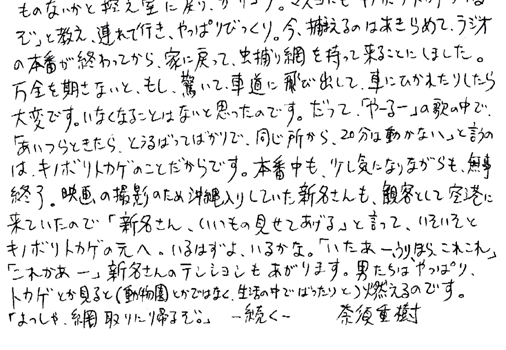 ものないかと控え室に戻り、
ぞ」と教え、連れて行き、やっぱりびっくり。今、捕えるのはあきらめて、ラジオ
の本番が終わってから、家に戻って、虫捕り網を持って来ることにしました。
万全を期さないと、もし、驚いて、車道に飛び出して、車にひかれたりしたら
大変です。いなくなることはないと思ったのです。だって、「やーるー」の歌の中で、
「あいつらときたら、とぅるばってばかりで、同じ所から、20分は動かない。」と言うの
は、キノボリトカゲのことだからです。本番中も、少し気になりながらも、無事
終了。映画の撮影のため沖縄入りしていた新名さんも、観客として空港に
来ていたので「新名さん、いいもの見せてあげる」と言って、いそいそと
キノボリトカゲの元へ。いるはずよ、いるかな。「いたあー、ほらほら、これこれ」
「これかあー」新名さんのテンションもあがります。男たちはやっぱり、
トカゲとか見ると(動物園とかではなく、生活の中でばったりと)燃えるのです。
「よっしゃ、網取りに帰るぞ。」 -続く- 奈須重樹